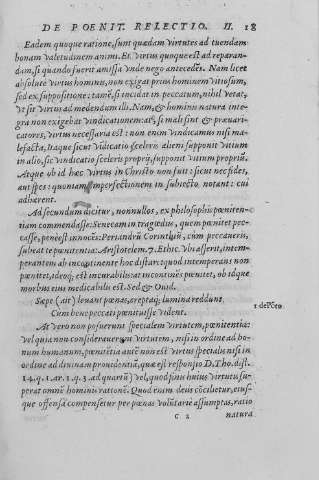 DE POENIT. RELECTIO. II. 18
Eadem quoque ratione, sunt quædam virtutes ad tuendam
bonam valetudinem animi. Et virtus quoque est ad reparan-
dam, si quando fuerit amissa vnde nego antecedẽs. Nam licet
absolutè virtus hominis, non exigat prius hominem vitiosum,
sed ex suppositione: tamẽ, si incidat in peccatum, nihil vetat,
vt sit virtus ad medendum illi. Nam, & hominis natura inte
gra non exigebat vindicationem: at, si mali sint & præuari-
catores, virtus necessaria est: non enim vindicamus nisi ma-
lefacta, Itaque sicut vidicatio sceleris alieni supponit vitium
in alio, sic vindicatio sceleris proprij, supponit vitium propriũ.
Atque ob id hæc virtus in Christo non fuit: sicut nec fides,
aut spes: quoniam imperfectionem in subiecto notant: cui
adhærent.
Ad secundum dicitur, nonnullos, ex philosophis pœniten-
tiam commendasse: Senecam in tragœdijs, quem pœnitet pec
casse, penè est innocẽs: Periandrũ Corintiũ, cùm peccaueris,
subeat te pœnitentia: Aristotelem. 7. Ethic. Vbi asserit, intem-
perantem ab incontinente hoc distare: quod intemperans non
pœnitet, ideoq; est incurabilis: at incontinẽs pœnitet, ob idque
morbus eius medicabilis est. Sed & Ouid.
Sæpe (ait) leuant pœnas, ereptaq; lumina reddunt
Cum bene peccati pœnituisse vident.
1 de Põto
At vero non posuerunt specialem virtutem, pœnitentiã:
vel quia non considerauerunt virtutem, nisi in ordine ad bo-
num humanum, pœnitẽtia autẽ non est virtus specialis nisi in
ordine ad diuinam prouidentiã, quæ est responsio D. Tho. dist.
14. q. 1. ar. 1. q. 3. ad quartũ) vel, quod finis huius virtutis su-
perat omnẽ hominis rationẽ. Quod enim deus cõcilietur, eius-
que offensã compensetur per pœnas volũtariè assumptas, ratio
C 2 natura